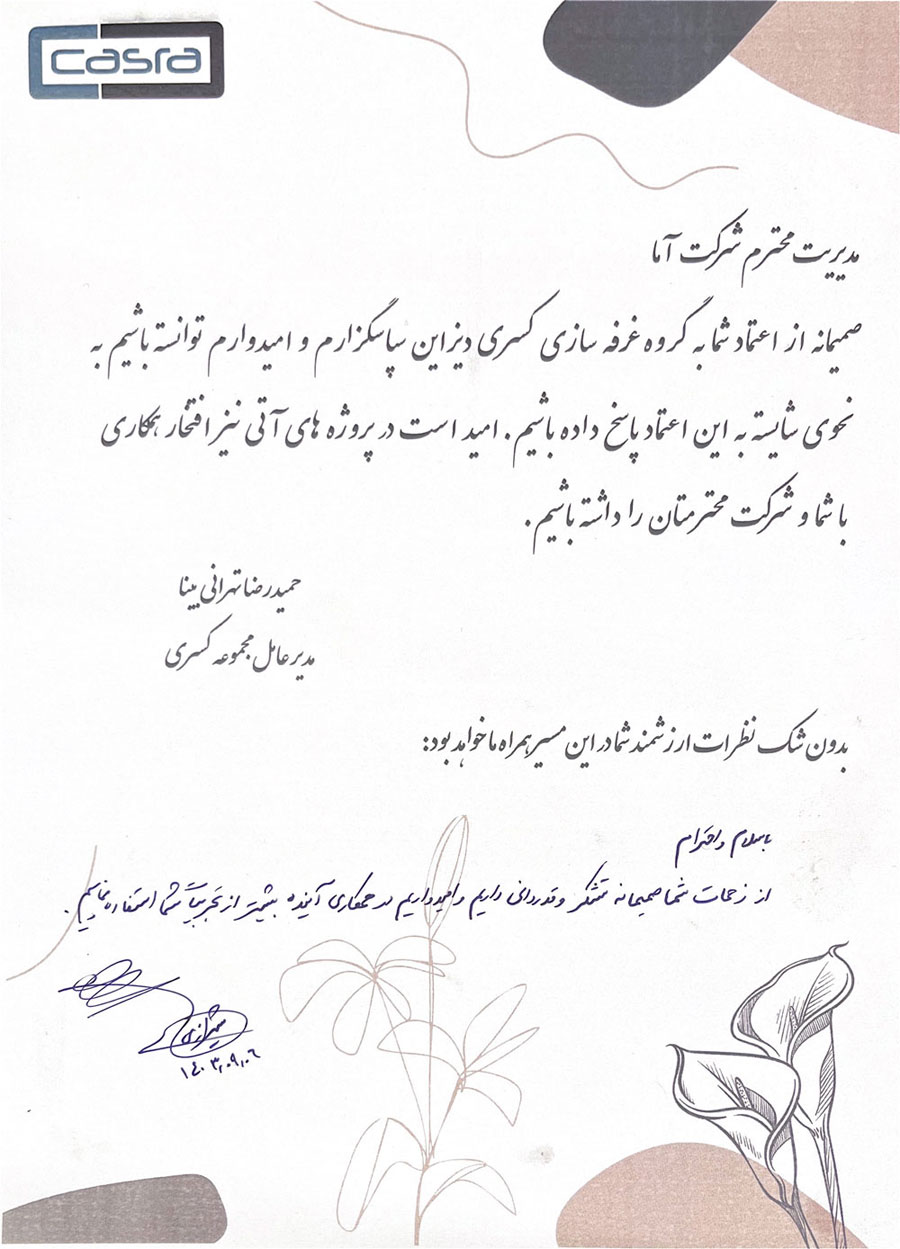 casra
مدیریت محترم شرکت آما
صمیمانه از اعتماد شما به گروه غرفه سازی کسری دیزاین سپاسگزارم و امیدوارم توانسته باشیم به
نحوی شایسته به این اعتماد پاسخ داده باشیم. امید است در پروژه های آتی نیز افتخار همکاری
با شما و شرکت محترمتان را داشته باشیم.
حمیدرضا تهرانی بینا
مدیر عامل مجموعه کسری
بدون شک نظرات ارزشمند شما در این مسیر همراه ما خواهد بود:
با سلام و احترام
از زحمات شما صمیمانه تشکر و قدردانی داریم و امیدواریم در همکاری آینده بیشتر از تجربیات شما استفاده نماییم.
شیرازی
۱۴۰۳,۰۹,۰۶